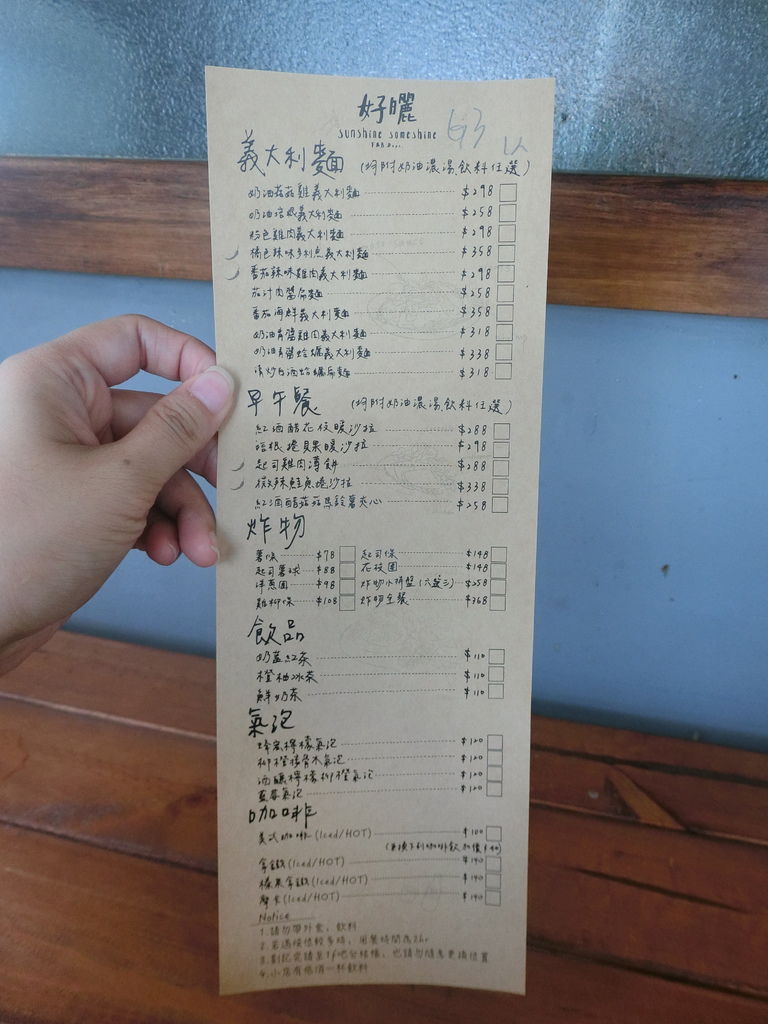 好曬
sunshine someshine
63
義大利麵 (均附奶油濃湯,飲料任選)
奶油菇菇雞義大利麵 $298
奶油培根義大利麵 $258
粉色雞肉義大利麵 $298
橘色辣味多利魚義大利麵 $358
番茄辣味雞肉義大利麵 $298
茄汁肉醬扁麵 $258
番茄海鮮義大利麵 $358
奶油青醬雞肉義大利麵 $318
奶油青醬蛤蠣義大利麵 $338
清炒白酒蛤蠣扁麵 $318
早午餐 (均附奶油濃湯,飲料任選)
紅酒醋花枝暖沙拉 $288
培根捲貝果暖沙拉 $298
起司雞肉薄餅 $288
微辣鮭魚燒沙拉 $338
紅酒醋菇菇馬鈴薯夾心 $258
炸物
薯條 $78 起司條 $148
起司薯球 $88 花枝圈 $148
洋蔥圈 $98 炸物小拼盤(六選三) $258
雞柳條 $108 炸物全餐 $368
飲品
奶蓋紅茶 $110
橙柚冰茶 $110
鮮奶茶 $110
氣泡
蜂蜜檸檬氣泡 $120
柳橙接骨木氣泡 $120
洒釀檸檬柳橙氣泡 $120
藍莓氣泡 $120
咖啡
美式咖啡(Iced/HOT) $100
(更換下列咖啡飲加價$40)
拿鐵(Iced/HOT) $140
榛果拿鐵(Iced/HOT) $140
摩卡(Iced/HOT) $140
Notice
1.請勿帶外食、飲料
2.若遇候位較多時, 用餐時間為2hr
3.劃記完請至1F吧台結帳, 也請勿隨意更換位置
4.小店有低消一杯飲料